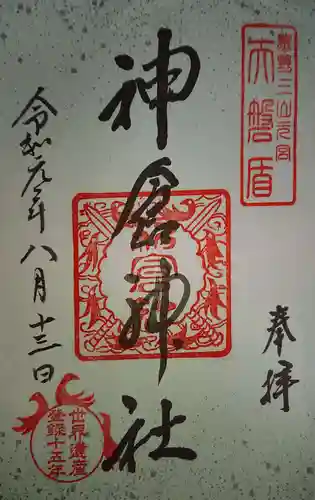 熊野三山元宮
天磐盾
奉拝
神倉神社
令和元年八月十三日
世界遺産
登録十五年